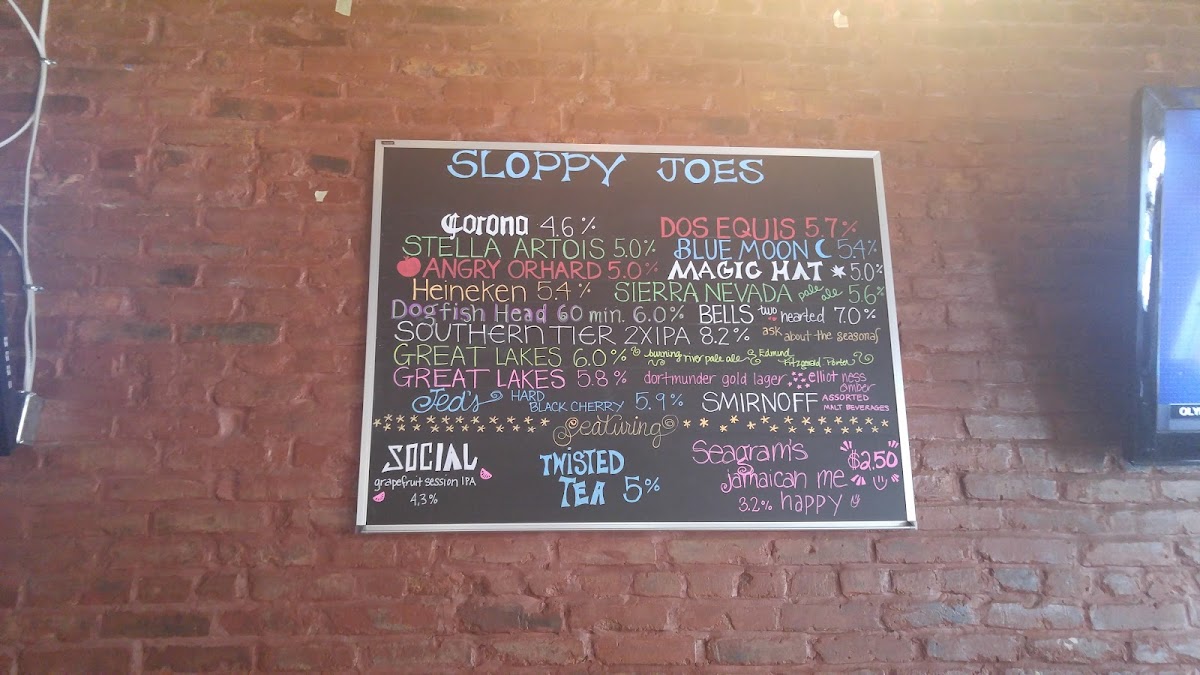 SLOPPY JOES
Corona 4.6% DOS EQUIS 5.7%
STELLA ARTOIS 5.0% BLUE MOON 5.4%
ANGRY ORHARD 5.0% MAGIC HAT 5.0%
Heineken 5.4% SIERRA NEVADA pale ale 5.6%
Dogfish Head 60 min. 6.0% BELLS two hearted 7.0%
SOUTHERN TIER 2XIPA 8.2% ask about the seasonals
GREAT LAKES 6.0% burning river pale ale Edmund Fitzgerald Porter
GREAT LAKES 5.8% dortmunder gold lager elliot ness amber
Jed's HARD BLACK CHERRY 5.9% SMIRNOFF ASSORTED MALT BEVERAGES
featuring
SOCIAL
grapefruit session IPA
4.3%
TWISTED
TEA 5%
Seagram's
jamaican me
3.2% happy
$2.50